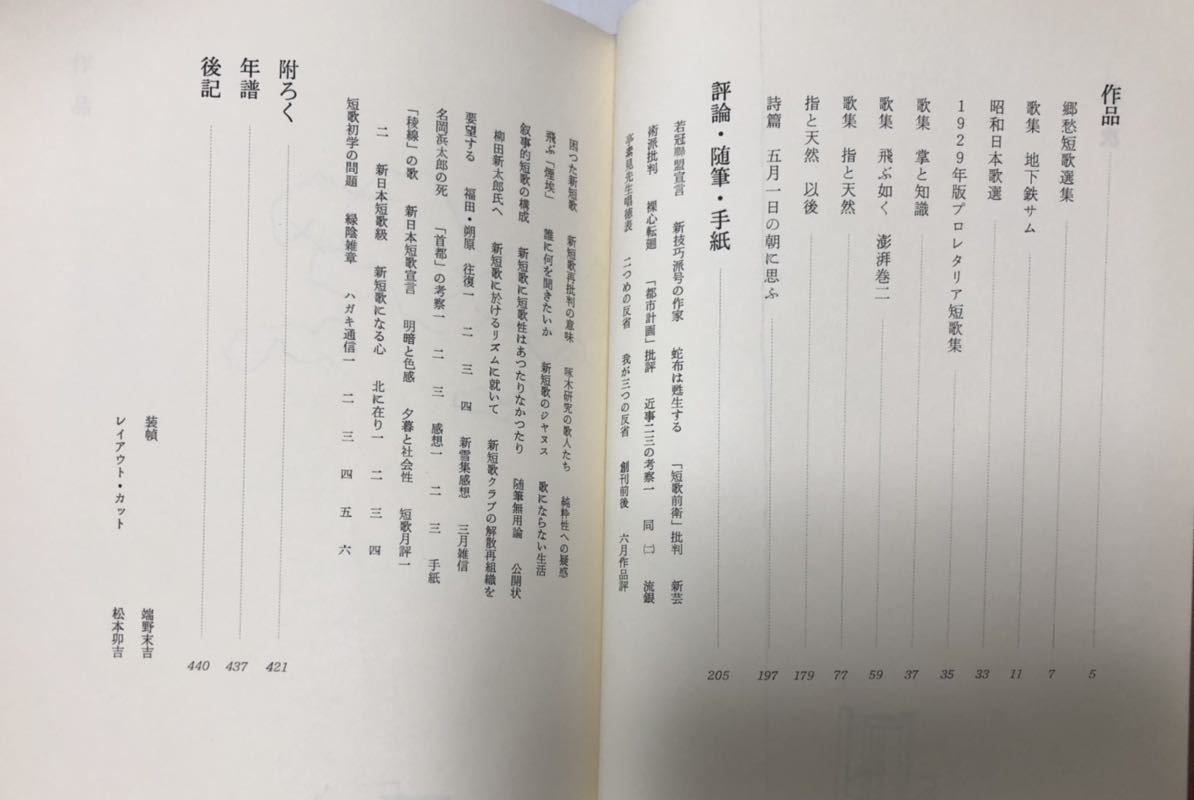 作品 5
郷愁短歌選集 7
歌集 地下鉄サム 11
昭和日本歌選 33
1929年版プロレタリア短歌集 35
歌集 掌と知識 37
歌集 飛ぶ如く 澎湃巻二 59
歌集 指と天然 77
指と天然 以後 179
詩篇 五月一日の朝に思ふ 197
評論・随筆・手紙 205
若冠聯盟宣言 新技巧派号の作家 蛇布は甦生する 「短歌前衛」批判 新芸
術派批判 裸心転廻 「都市計画」批評 近事二三の考察一 同(二) 流銀
亭素見先生唱徳表 二つめの反省 我が三つの反省 創刊前後 六月作品評
困つた新短歌 新短歌再批判の意味 啄木研究の歌人たち 純粋性への疑惑
飛ぶ「煙埃」 誰に何を聞きたいか 新短歌のジャヌス 歌にならない生活
叙事的短歌の構成 新短歌に短歌性はあつたりなかつたり 随筆無用論 公開状
柳田新太郎氏へ 新短歌に於けるリズムに就いて 新短歌クラブの解散再組織を
要望する 福田・朔原 往復一 二 三 四 新雪集感想 三月雑信
名岡浜太郎の死 「首都」の考察一 二 三 感想一 二 三 手紙
「稜線」の歌 新日本短歌宣言 明暗と色感 夕暮と社会性 短歌月評一
二 新日本短歌級 新短歌になる心 北に在り一 二 三 四
短歌初学の問題 緑陰雑章 ハガキ通信一 二 三 四 五 六
附ろく 421
年譜 437
後記 440
装幀 端野末吉
レイアウト・カット 松本卯吉